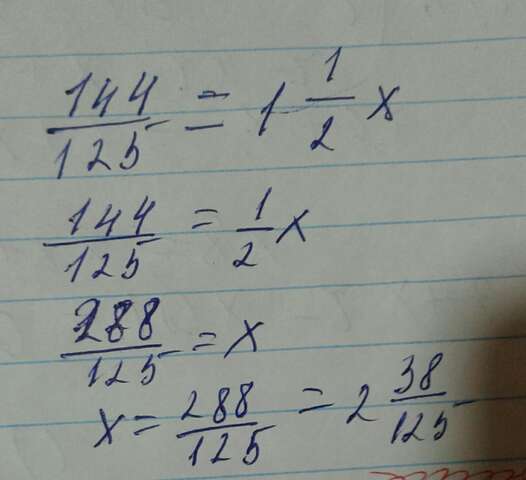 144/125 = 1 1/2 x
144/125 = 1/2 x
288/125 = x
x = 288/125 = 2 38/125